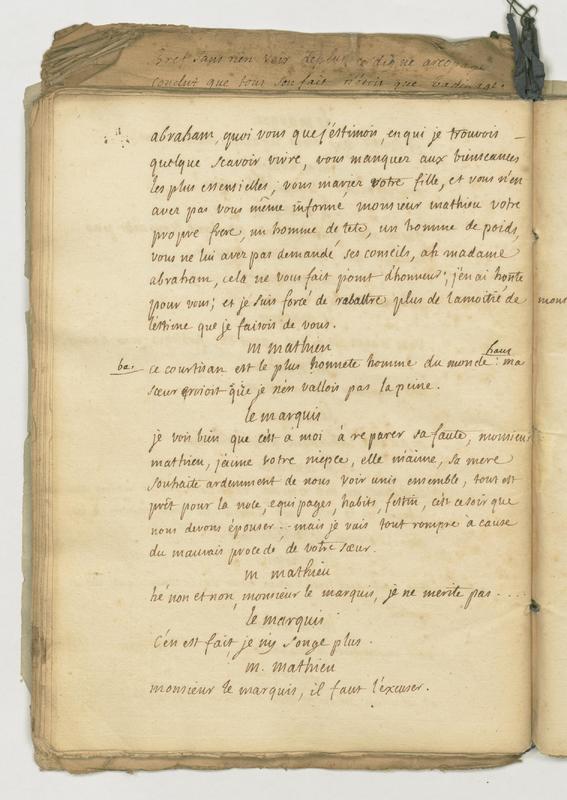 Bret sans rien voir de plus
conclut que tous son fait n'etoit que badinage.
abraham, quoi vous que j'estimois, en qui je trouvois
quelque scavoir vivre, vous manquer aux bienseances
les plus essensielles, vous marier votre fille, et vous n'en
avez pas vous même informé monsieur mathieu votre
propre frere, un homme de tete, un homme de poids,
vous ne lui avez pas demandé ses conseils, ah madame
abraham, cela ne vous fait point d'honneur; j'en ai honte
pour vous; et je suis forcé de rabattre plus de la moitié de
l'estime que je faisois de vous.
m mathieu
bas ce courtisan est le plus honnete homme du monde: haut ma
sœur croioit que je n'en vallois pas la peine.
le marquis
je vois bien que c'est à moi à reparer sa faute, monsieur
mathieu, j'aime votre niepce, elle m'aime, sa mere
souhaite ardemment de nous voir unis ensemble, tout est
prêt pour la noce, equipages, habits, festin, c'est ce soir que
nous devons épouser... mais je vais tout rompre à cause
du mauvais procedé de votre sœur.
m mathieu
hé non et non, monsieur le marquis, je ne merite pas....
le marquis
c'en est fait, je n'y songe plus.
m. mathieu
monsieur le marquis, il faut l'excuser.